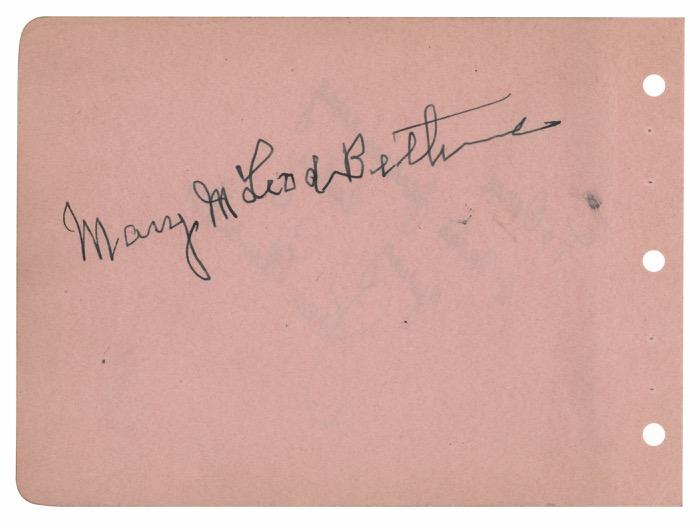 Mary McLeod Bethune